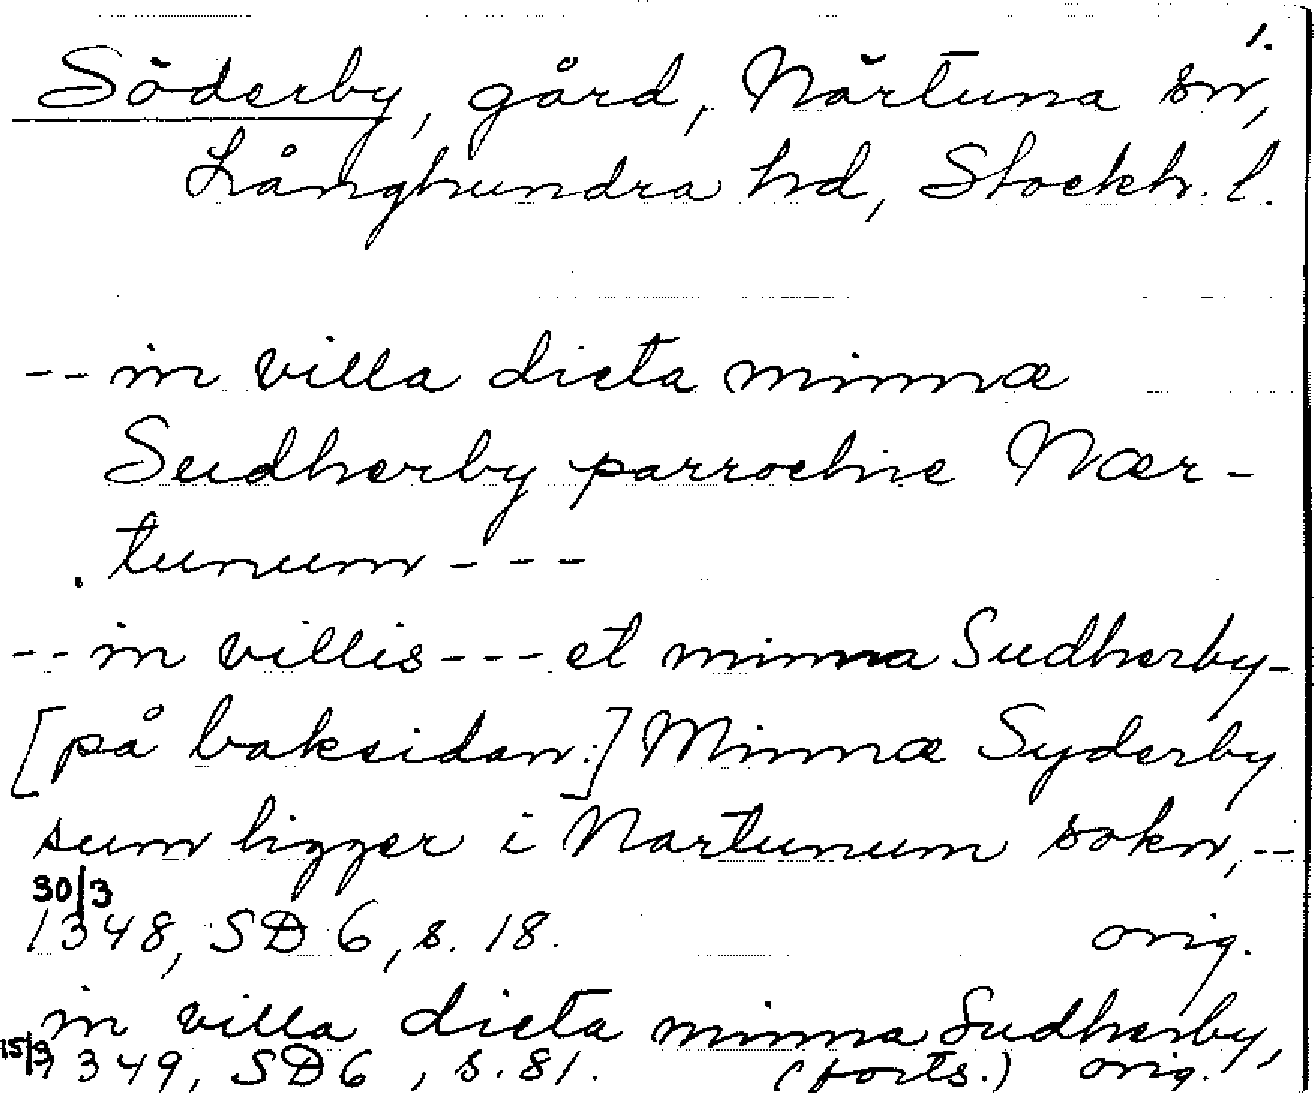 1.
Söderby, gård, Närtuna sn,
Långhundra hd, Stockh. l.
-- in villa dicta minnæ
Sudherby parrochie Nær-
tunum ---
-- in villis --- et minna Sudherby-
[på baksidan:] Minnæ Syderby
sum ligger i Nartunum sokn, --
30/3
1348, SD 6, s. 18. orig.
in villa dicta minna Sudherby,
15/3 1349, SD 6, s. 81. (forts.) orig.